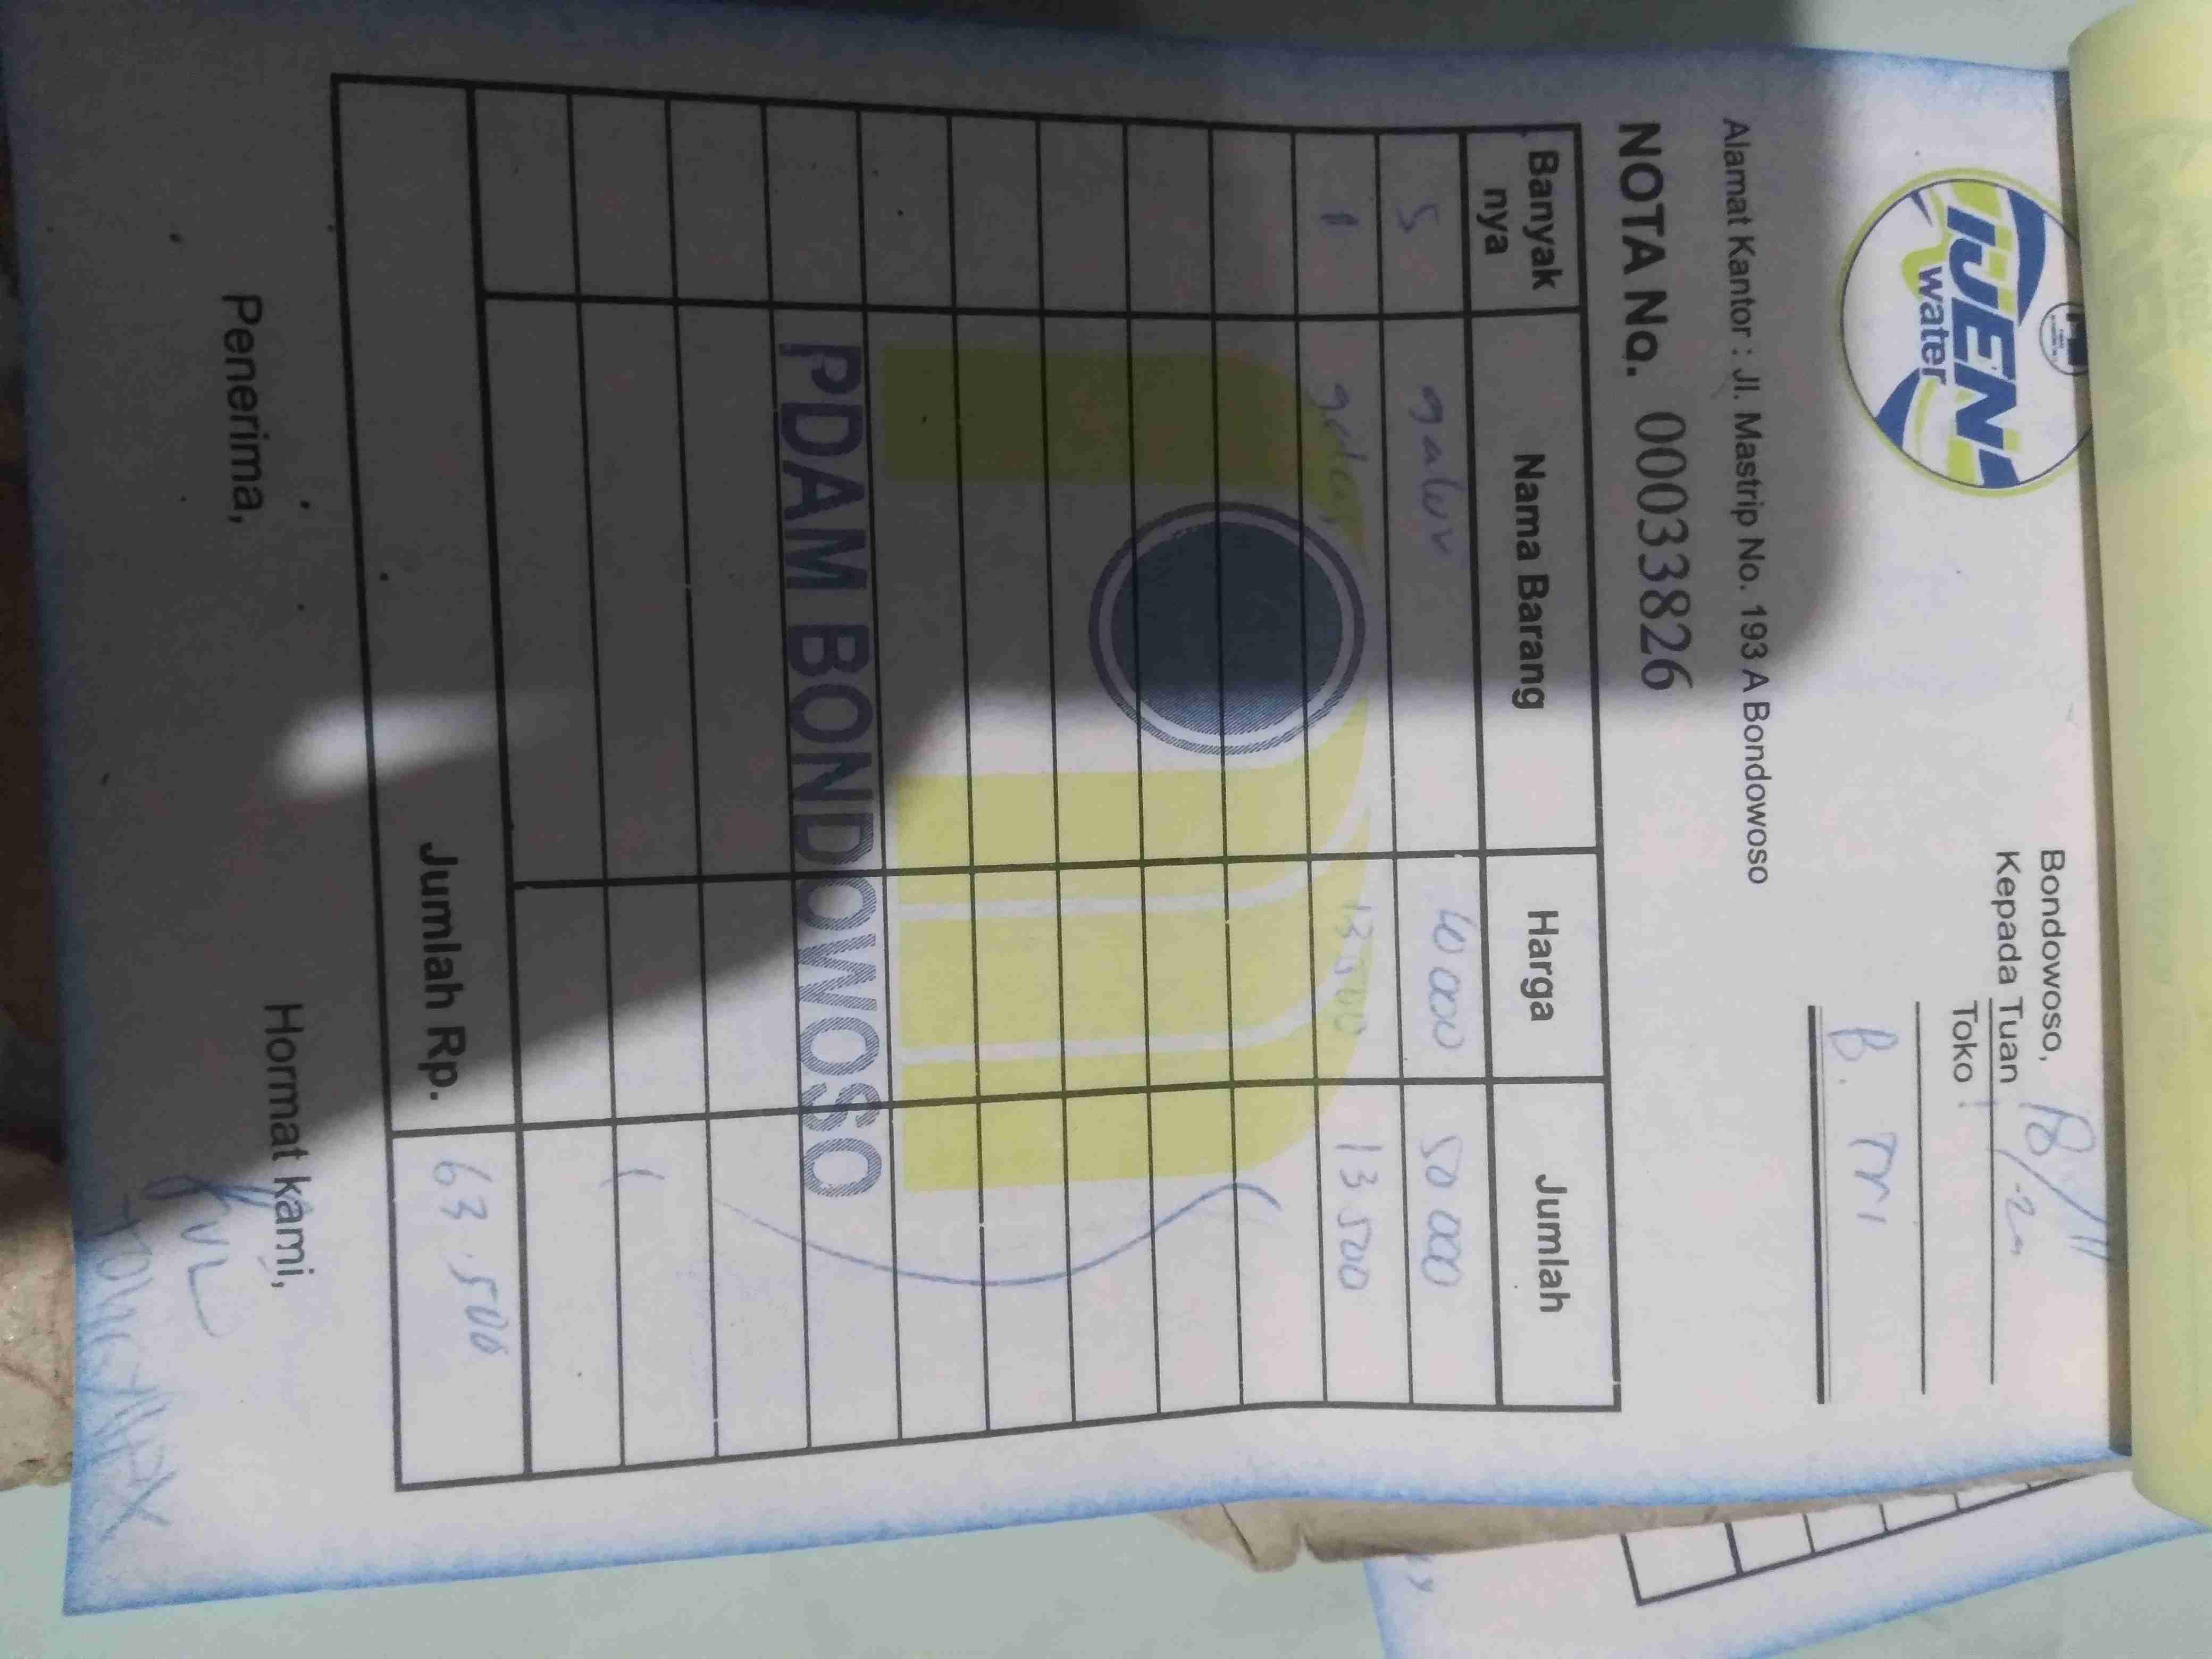 IJEN
water
Bondowoso, 18/11
Kepada Tuan
Toko
B. Tri
Alamat Kantor : Jl. Mastrip No. 193 A Bondowoso
NOTA No. 00033826
Banyak nya Nama Barang Harga Jumlah
5 galon 50 000
1 galon 13500 13 500
PDAM BONDOWOSO
Jumlah Rp. 63.500
Penerima, Hormat kami,